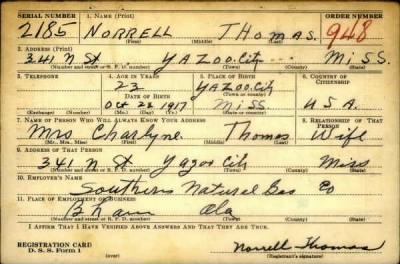 SERIAL NUMBER 1. NAME (Print) ORDER NUMBER
2185 NORRELL THOMAS. 948
(First) (Middle) (Last)
2. ADDRESS (Print)
341 N St YAZOO. City MISS.
(Number and street or R. F. D. number) (Town) (County) (State)
3. TELEPHONE 4. AGE IN YEARS 5. PLACE OF BIRTH 6. COUNTRY OF CITIZENSHIP
23 YAZOO. City
DATE OF BIRTH (Town or county)
Oct 22 1917 Miss U S A.
(Exchange) (Number) (Mo.) (Day) (Yr.) (State or country)
7. NAME OF PERSON WHO WILL ALWAYS KNOW YOUR ADDRESS 8. RELATIONSHIP OF THAT PERSON
Mrs Charlyne Thomas Wife
(Mr., Mrs., Miss) (First) (Middle) (Last)
9. ADDRESS OF THAT PERSON
341 N St Yazoo City Miss
(Number and street or R. F. D. number) (Town) (County) (State)
10. EMPLOYER'S NAME
Southern Natural Gas Co
11. PLACE OF EMPLOYMENT OR BUSINESS
Bham Ala
(Number and street or R. F. D. number) (Town) (County) (State)
I AFFIRM THAT I HAVE VERIFIED ABOVE ANSWERS AND THAT THEY ARE TRUE.
REGISTRATION CARD
D. S. S. Form 1 Norrell Thomas
(Registrant's signature)